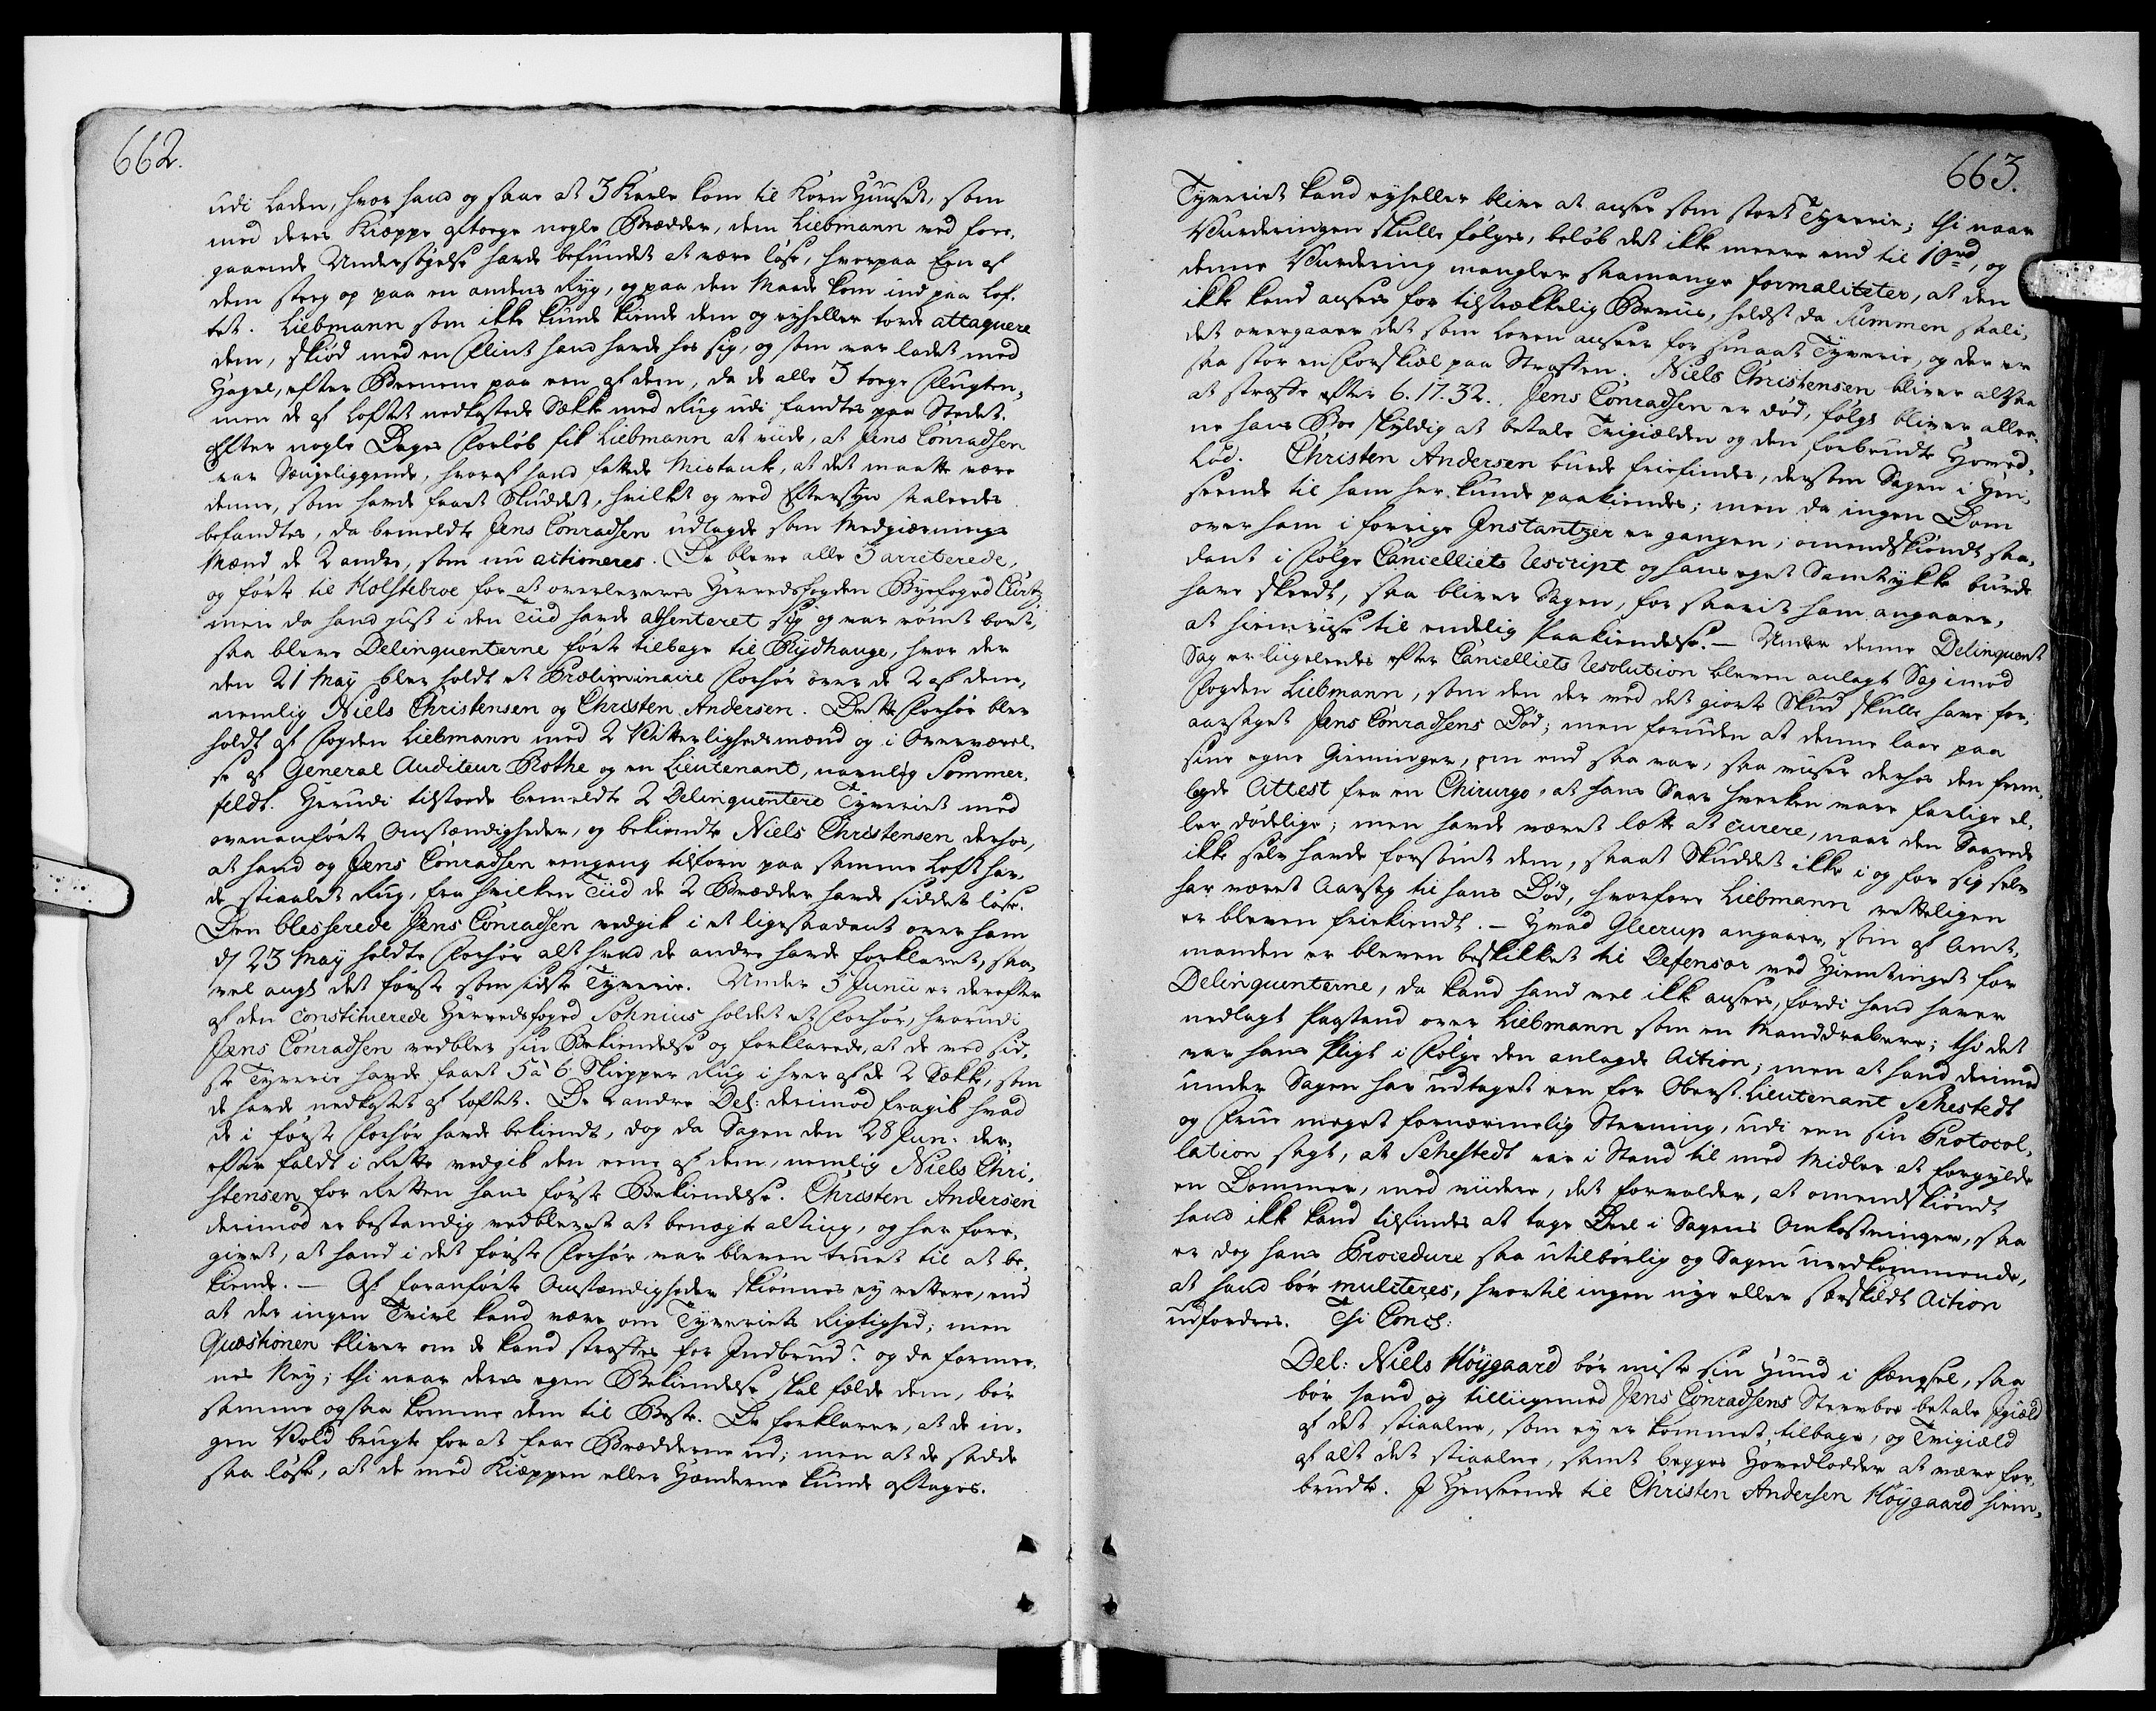 662.
udi Laden, hvor hand og saae at 3 Karle kom til Korn Huuset, som
med deres Kieppe aftoege nogle Brædder, dem Liebmann ved fore,
gaaende Undersøgelse hafde befundet at være løse, hvorpaa Een af
dem steeg op paa en andens Ryg, og paa den Maade kom ind paa Lof,
tet. Liebmann som ikke kunde kiende dem og eyheller torde attaquere
dem, skiød med en Flint hand hafde hos sig, og som var ladet med
Hagel, efter Beenene paa een af dem, da de alle 3 toege Flugten,
men de af Loftet nedkastede Sække med Rug udi fandtes paa Stedet.
Efter nogle Dages Forløb fik Liebmann at viide, at Jens Conradsen
var Sængeliggende, hvoraf hand fattede Mistanke, at det maatte være
denne, som hafde faaet Skuddet, hvilket og ved Eftersyn saaledes
befandtes, da bemeldte Jens Conradsen udlagde som Medgiernings
Mænd de 2 andre, som nu actioneres. De bleve alle 3 arreterede,
og førte til Holstebroe for at overleveres Herredsfogden Byefoged Curtz
men da hand just i den Tiid hafde absenteret sig og var rømt bort,
saa bleve Delinquenterne førte tilbage til Rydhauge, hvor der
den 21 May blev holdt et Præliminaire Forhør over de 2 af dem,
nemlig Niels Christensen og Christen Andersen. Dette Forhør blev
holdt af Fogden Liebmann med 2 Vitterlighedsmænd og i Overværel,
se af General Auditeur Rothe og en Lieutenant, navnlig Sommer,
feldt. Herudi tilstoede bemeldte 2 Delinquentere Tyveriet med
ovenanførte Omstændigheder, og bekiendte Niels Christensen derhos,
at hand og Jens Conradsen eengang tilforn paa samme Loft haf,
de stiaalet Rug, fra hvilken Tiid de 2 Brædder hafde siddet løse.
Den blesserede Jens Conradsen vedgik i et ligesaadant over ham
d/ 23 May holdte Forhør alt hvad de andre hafde forklaret, saa,
vel angl det første som sidste Tyverie. Under 5 Junii er derefter
af den Constituerede Herredsfoged Sohnius holdet et Forhør, hvorudi
Jens Conradsen vedblev sin Bekiendelse og forklarede, at de ved sid,
ste Tyverie hafde faaet 5 à 6 Skiepper Rug i hver af de 2 Sække, som
de hafde nedkastet af Loftet. De 2 andre Del: derimod fragik hvad
de i første Forhør hafde bekiendt, dog da Sagen den 28 Jun. der,
efter faldt i Rette vedgik den eene af dem, nemlig Niels Chri,
stensen for Retten hans første Bekiendelse. Christen Andersen
derimod er bestandig vedblevet at benægte alting, og har fore,
givet, at hand i det første Forhør var bleven truet til at be,
kiende. — Af foranførte Omstændigheder skiønnes ey rettere, end
at der ingen Tvivl kand være om Tyveriets Rigtighed; men
Quæstionen bliver om de kand straffes for Indbrud? og da formee,
nes Ney; thi naar deres egen Bekiendelse skal fælde dem, bør
samme ogsaa komme dem til Beste. De forklarer, at de in,
gen Vold brugte for at faae Brædderne ud; men at de sadde
saa løse, at de med Kieppen eller Hænderne kunde aftages.
663.
Tyveriet kand eyheller blive at ansee som stort Tyverie; thi naar
Vurderingen skulle følges, beløb det ikke meere end til 10rd, og
denne Vurdering mangler saamange formaliteter, at den
ikke kand ansees for tilstrækkelig Beviis, helst da Summen saali,
det overgaaer det som Loven anseer for smaat Tyverie, og der er
saa stor en Forskiæl paa Straffen. Niels Christensen bliver altsaa
at straffe efter 6.17.32. Jens Conradsen er død, følgl bliver allee,
ne hans Boe skyldig at betale Tvigielden og den forbrudte Hoved,
lod. Christen Andersen burde friefindes, dersom Sagen i Hen,
seende til ham her kunde paakiendes; men da ingen Dom
over ham i forrige Instantzer er gangen, omendskiøndt saa,
dant i Følge Cancelliets Rescript og hans eget Samtykke burde
have skeedt, saa bliver Sagen, for saavit ham angaaer,
at hiemviise til endelig Paakiendelse. — Under denne Delinquent
Sag er liigeledes efter Cancelliets Resolution bleven anlagt Sag imod
Fogden Liebmann, som den der ved det giorte Skud skulle have for,
aarsaget Jens Conradsens Død; men foruden at denne laae paa
sine egne Gierninger, om end saa var, saa viiser derhos den frem,
lagde Attest fra en Chirurgo, at hans Saar hverken vare farlige el,
ler dødelige; men hafde været lette at curere, naar den Saarede
ikke selv hafde forsømt dem, saaat Skuddet ikke i og for sig selv
har været Aarsag til hans Død, hvorfore Liebmann retteligen
er bleven friekiendt. — Hvad Gleerup angaaer, som af Amt,
manden er bleven beskikket til Defensor ved Hiemtinget for
Delinquenterne, da kand hand vel ikke ansees, fordi hand haver
nedlagt Paastand over Liebmann som en Manddrabere; thi det
var hans Pligt i Følge den anlagde Action; men at hand derimod
under Sagen har udtaget een for Oberst-Lieutenant Sehestedt
og Frue meget fornærmelig Stevning, udi een sin Protocol,
lation sagt, at Sehestedt var i Stand til med Midler at forgylde
en Dommer, med viidere, det forvolder, at omendskiøndt
hand ikke kand tilfindes at tage Deel i Sagens Omkostninger, saa
er dog hans Procedure saa utilbørlig og Sagen uvedkommende,
at hand bør mulcteres, hvortil ingen nye eller særskildt Action
udfordres. Thi Concl:
Del: Niels Høygaard bør miste sin Huud i Fængsel, saa
bør hand og tilliigemed Jens Conradsens Stervboe betale Igield
af det stiaalne, som ey er kommet tilbage, og Tvigield
af alt det stiaalne, samt begges Hovedlodder at være for,
brudte. I Henseende til Christen Andersen Høygaard hiem,